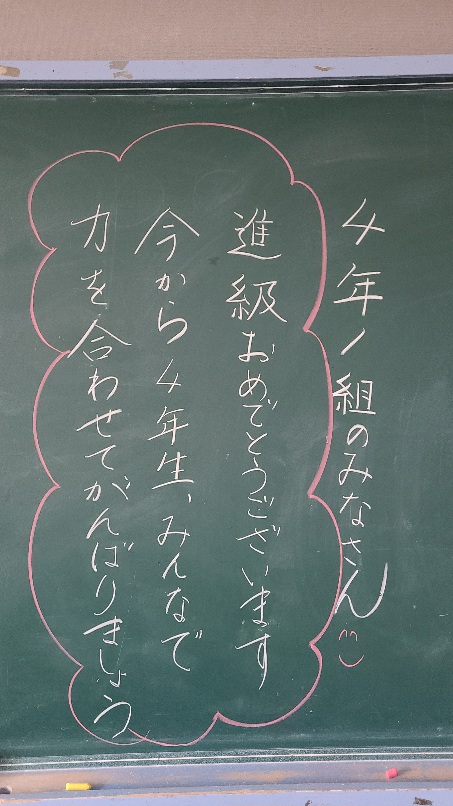 4年1組のみなさん
進級おめでとうございます
今から4年生、みんなで
力を合わせてがんばりましょう